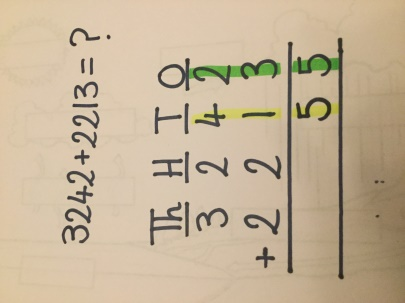 3242+2213=?
Th H T O
3 2 4 2
+ 2 2 1 3
5 5